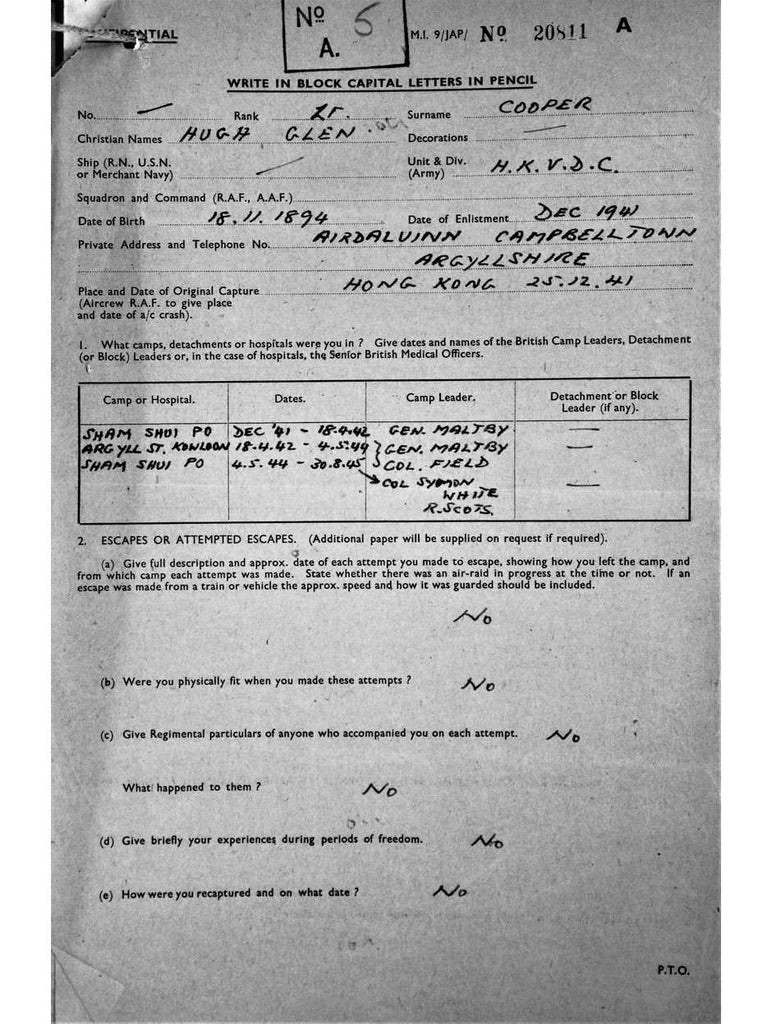 CONFIDENTIAL
No 5
A.
M.I. 9/JAP/ No 20811 A
WRITE IN BLOCK CAPITAL LETTERS IN PENCIL
No. — Rank LT. Surname COOPER
Christian Names HUGH GLEN Decorations —
Ship (R.N., U.S.N. or Merchant Navy) — Unit & Div. (Army) H.K.V.D.C.
Squadron and Command (R.A.F., A.A.F.)
Date of Birth 18.11.1894 Date of Enlistment DEC 1941
Private Address and Telephone No. AIRDALUINN CAMPBELLTONN
ARGYLLSHIRE
Place and Date of Original Capture HONG KONG 25.12.41
(Aircrew R.A.F. to give place
and date of a/c crash).
1. What camps, detachments or hospitals were you in ? Give dates and names of the British Camp Leaders, Detachment
(or Block) Leaders or, in the case of hospitals, the Senior British Medical Officers.
Camp or Hospital. Dates. Camp Leader. Detachment or Block Leader (if any).
SHAM SHUI PO DEC '41 - 18.4.42 GEN. MALTBY —
ARGYLL ST. KOWLOON 18.4.42 - 4.5.44 GEN. MALTBY —
SHAM SHUI PO 4.5.44 - 30.8.45 COL. FIELD
COL SYMON —
WHITE
R. SCOTS.
2. ESCAPES OR ATTEMPTED ESCAPES. (Additional paper will be supplied on request if required).
(a) Give full description and approx. date of each attempt you made to escape, showing how you left the camp, and
from which camp each attempt was made. State whether there was an air-raid in progress at the time or not. If an
escape was made from a train or vehicle the approx. speed and how it was guarded should be included.
No
(b) Were you physically fit when you made these attempts ? No
(c) Give Regimental particulars of anyone who accompanied you on each attempt. No
What happened to them ? No
(d) Give briefly your experiences during periods of freedom. No
(e) How were you recaptured and on what date ? No
P.T.O.